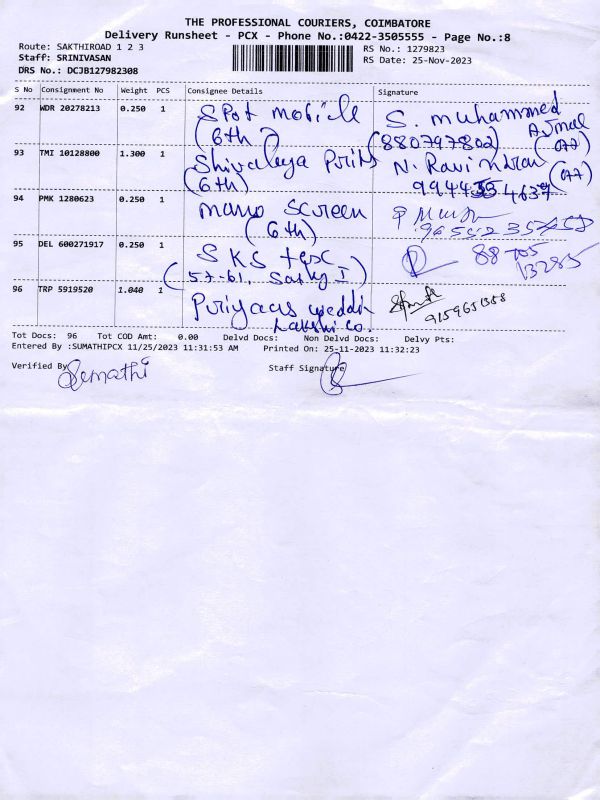 THE PROFESSIONAL COURIERS, COIMBATORE
Delivery Runsheet - PCX - Phone No.:0422-3505555 - Page No.:8
Route: SAKTHIROAD 1 2 3
Staff: SRINIVASAN
DRS No.: DCJB127982308
RS No.: 1279823
RS Date: 25-Nov-2023
S No Consignment No Weight PCS Consignee Details Signature
92 WDR 20278213 0.250 1 Spot mobile S. muhammed
Ajmal
(6th) (880797802)
93 TMI 10128800 1.300 1 Shivalaya Prints N. Ravindran
(6th)
94 PMK 1280623 0.250 1 mano screen
(6th)
95 DEL 600271917 0.250 1 SKS tex 88705
13285
96 TRP 5919520 1.040 1
9159651358
Tot Docs: 96 Tot COD Amt: 0.00 Delvd Docs: Non Delvd Docs: Delvy Pts:
Entered By :SUMATHIPCX 11/25/2023 11:31:53 AM Printed On: 25-11-2023 11:32:23
Verified By Sumathi Staff Signature